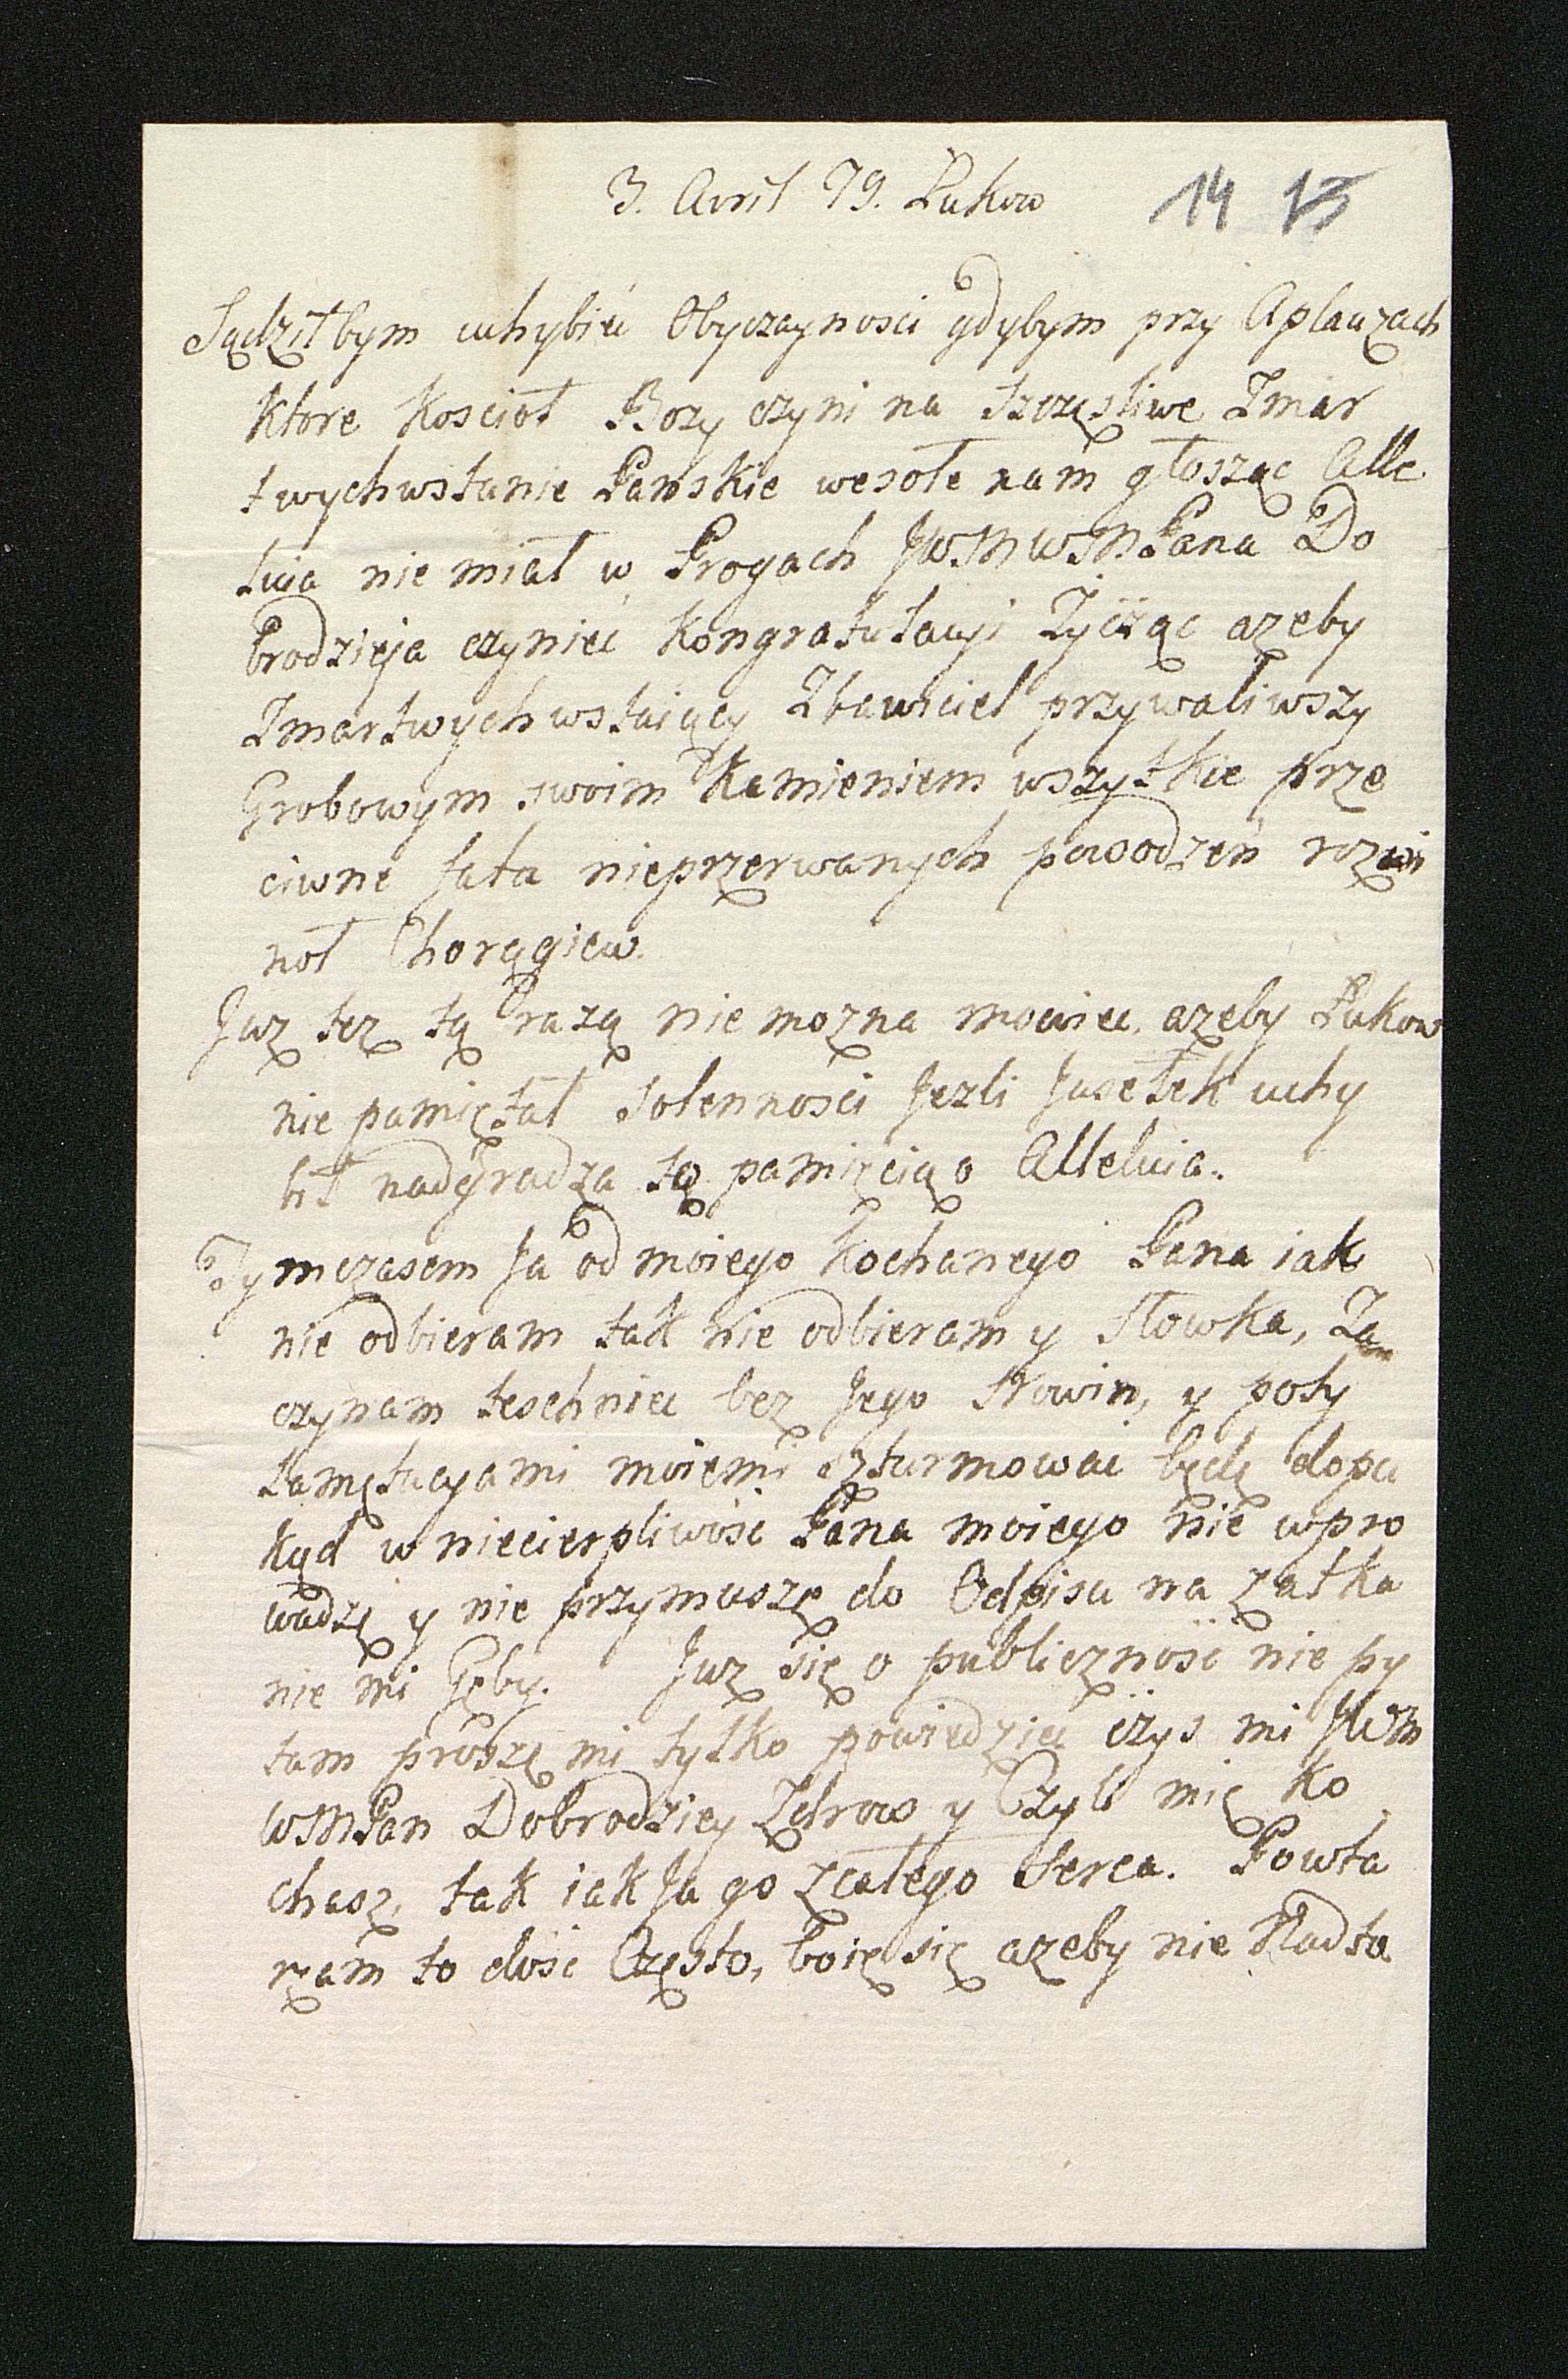 3. Avril 79. Łukow 14 13
Sądziłbym uchybić Obyczaynosci gdybym przy Aplauzach
ktore Kościoł Bozy czyni na szczęsliwe Zmar
twychwstanie Panskie wesołe nam głosząc Alle
luia nie miał w Progach JWMWMPana Do
brodzieja czynić Kongratulacyi Zycząc azeby
Zmartwychwstaiący Zbawiciel przywaliwszy
Grobowym swoim Kamieniem wszytkie prze
ciwne fata nieprzerwanych powodzeń rozwi
noł Chorągiew.
Juz tez tą razą nie mozna mowiec azeby Łukow
nie pamiętał Solennosci Jezli Jusełek uchy
bił nadgradza tą pamięcią o Alleluia.
Tymczasem Ja od moiego Kochanego Pana iak
nie odbieram tak nie odbieram y słowka, Za
czynam teschniec bez Jego Nowin, y poty
lamętacyami moiemi szturmowac będę dopu
kąd w niecierpliwość Pana moiego nie wpro
wadzę y nie przymuszę do Odpisu na zatka
nie mi Gęby. Juz się o publiczność nie py
tam proszę mi tylko powiedzieć iżyś mi JWM
WMPan Dobrodziey Zdrow y Czyli mię ko
chasz, tak iak Ja go z całego serca. Powta
rzam to dość Często, boię się azeby nie Nadto